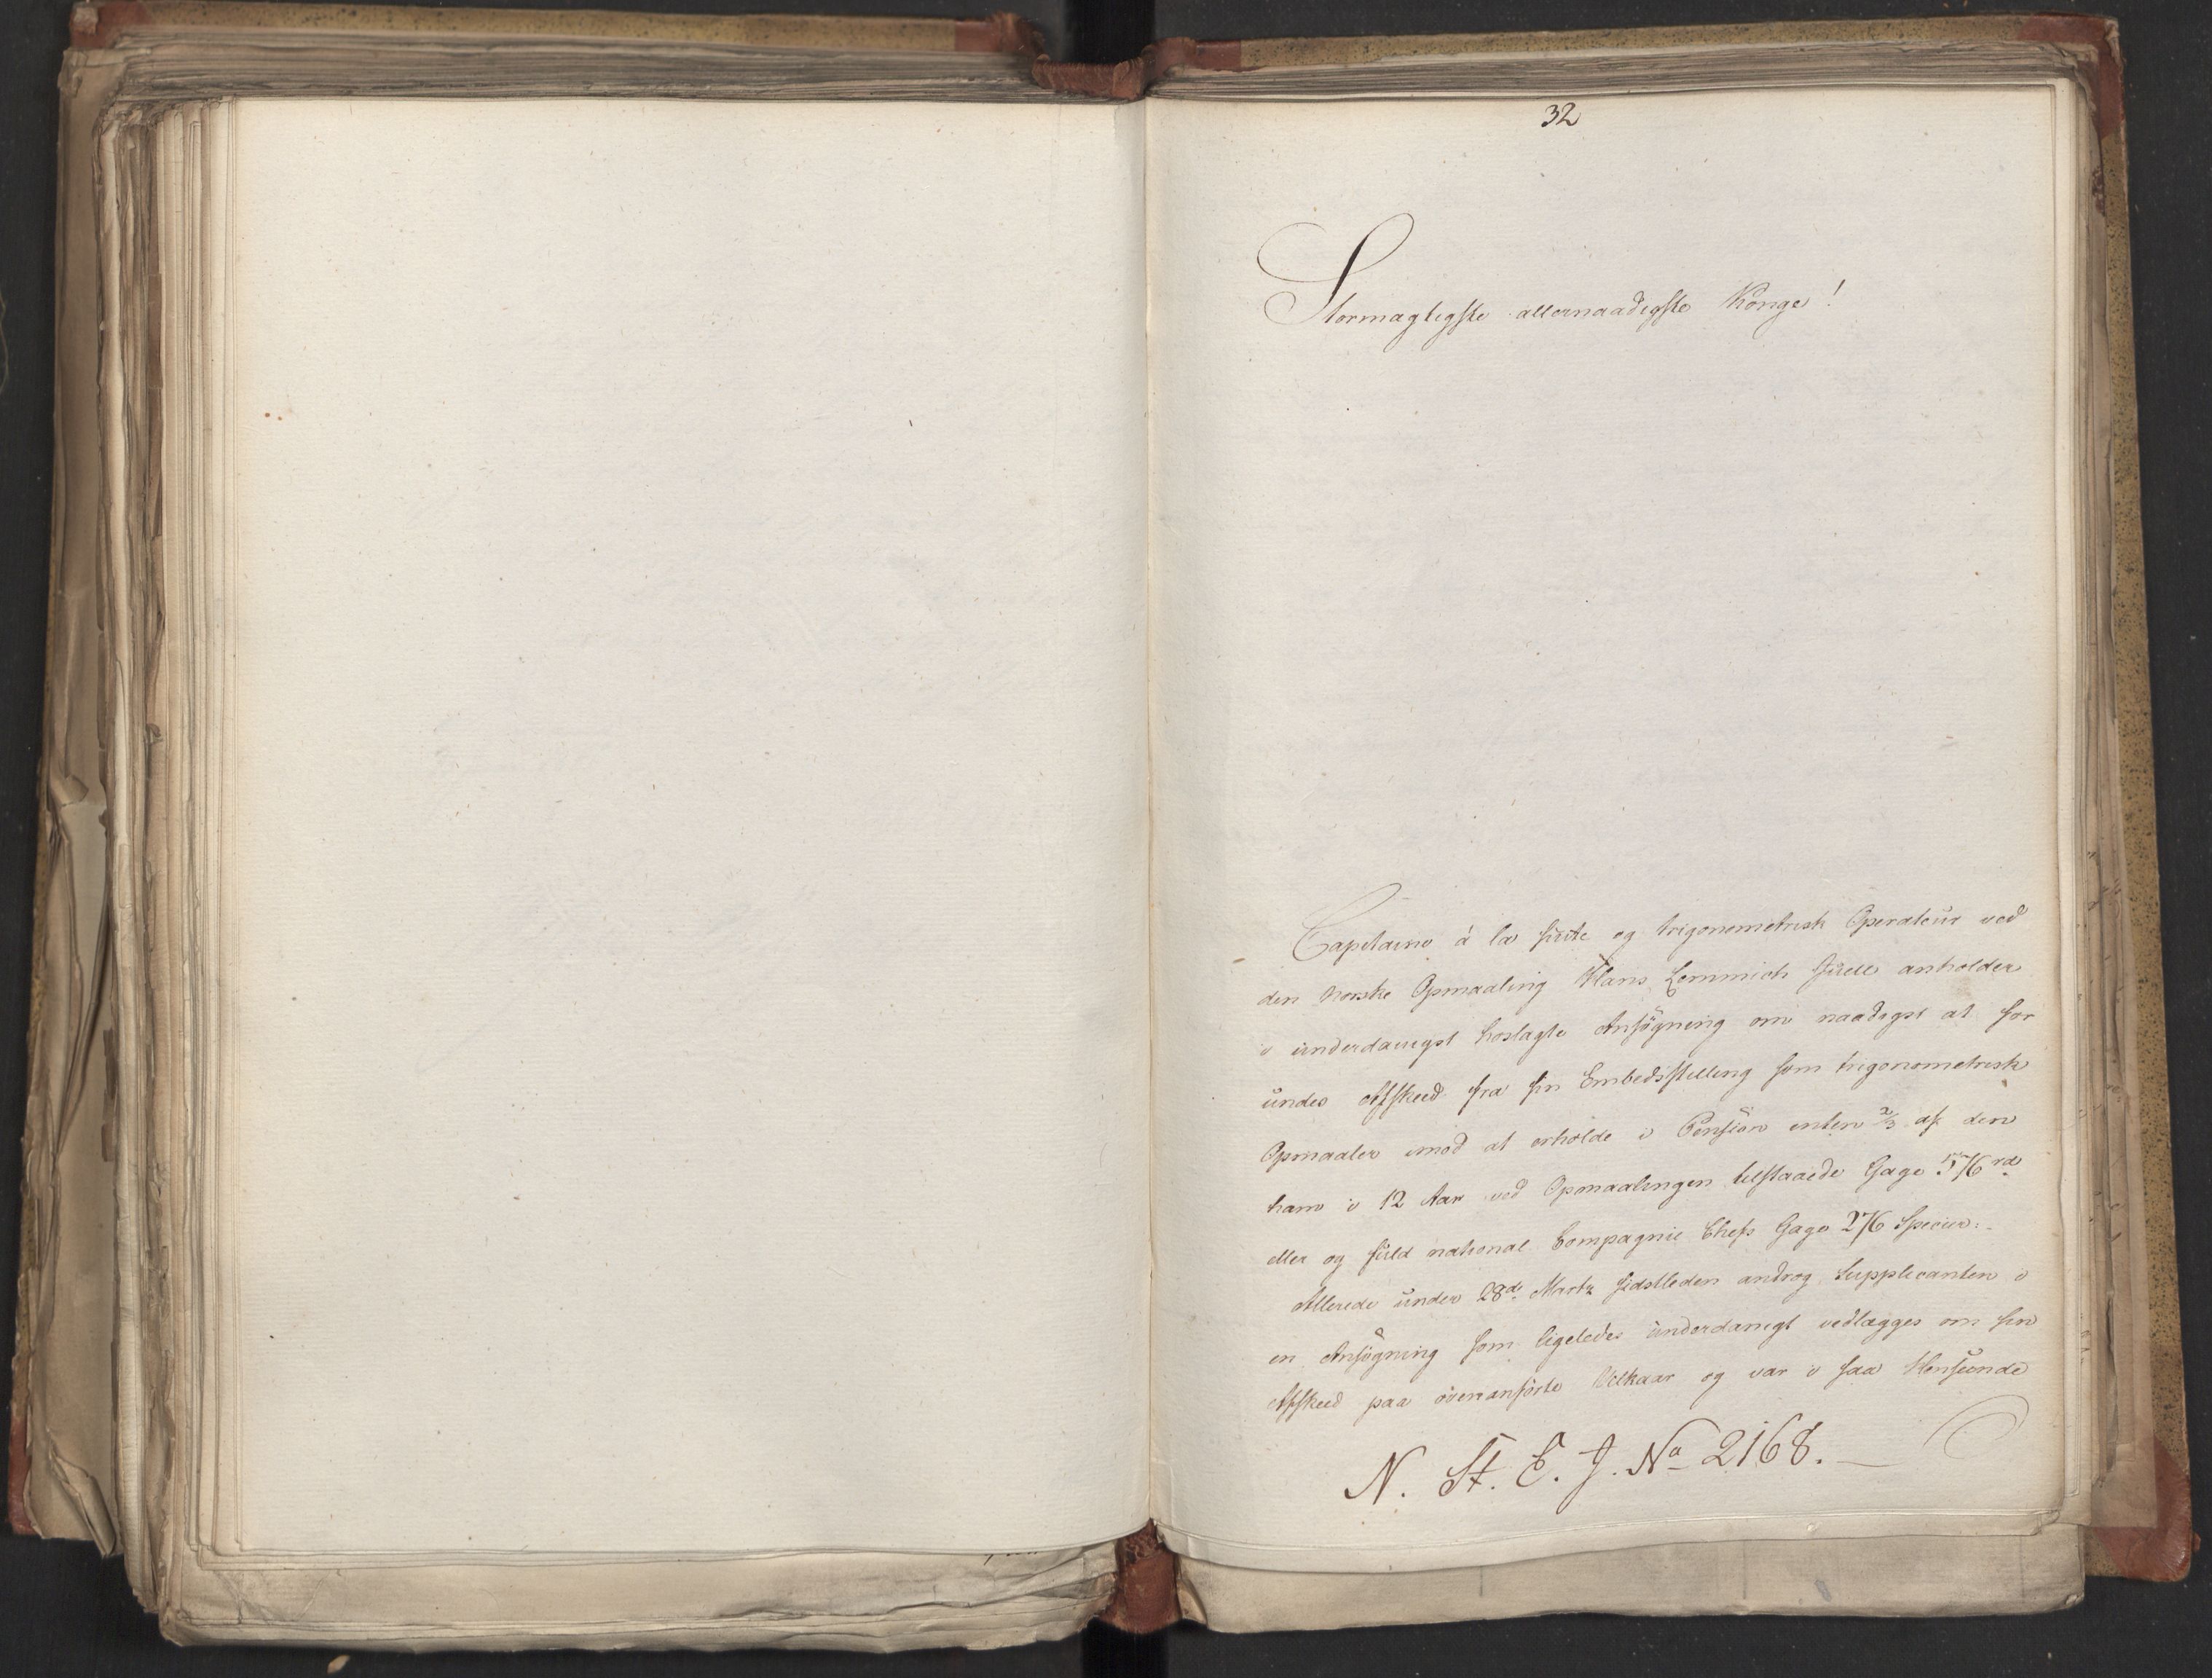 32
Stormægtigste allernaadigste Konge!
Capitaine à la suite og trigonometrisk Operateur ved
den norske Opmaaling Hans Lemmich Juell anholder
i underdanigst hoslagte Ansøgning om naadigst at for
undes Afskeed fra sin Embedsstilling som trigonometrisk
Opmaaler imod at erholde i Pension enten 2/3 af den
ham i 12 Aar ved Opmaalingen tilstaaede Gage 576 rd
eller og fuld national Compagnie Chefs Gage 276 Specier.
Allerede under 28de Martz sidstleden androg Supplicanten i
en Ansøgning som ligeledes underdanigt vedlægges om sin
Afskeed paa ovenanførte Vilkaar og var i saa Henseende
N. St. E. J. No 2168.